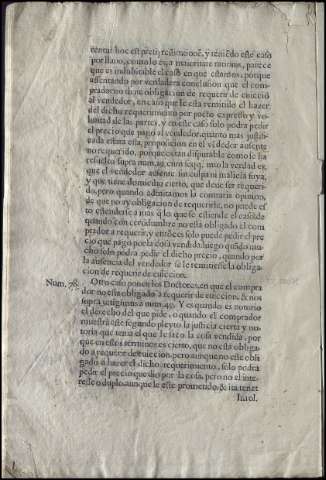 por llano, como lo es a
que es indubitable el caso en que estamos, porque
assentando por verdadera conclusion que el com-
prador no tiene obligacion de requerir de euiccion
al vendedor, en caso que le esta remitido el hazer
del dicho requerimiento por pacto expresso y vo-
luntad de las partes, y en este caso solo podra pedir
el precio que pago al vendedor, quanto mas justifi-
cada estara esta proposicion en el vendedor ausente
no requerido, porque es tan disputable como se ha
referido supra num. seqq. mas la verdad es,
que el vendedor ausente sin culpa ni malicia suya,
y que tiene domicilio cierto, que deue ser requeri-
do, pero quando admitamos la contraria opinion,
de que no ay obligacion de requerirle, no puede es-
to estenderse a mas q̃ lo que se estiende el caso dõ
de quando con certidumbre no està obligado el com
prador a requerir, y entõces solo puede pedir el pre
cio que pagò por la cosa vendida: luego quãdo mu-
cho solo podra pedir el dicho precio, quando por
la ausencia del vendedor se le remitiesse la obliga-
cion de requerir de euiccion.
Num. 78. Otro caso ponen los Doctores, en que el compra
dor no està obligado a requerir de euiccion, & nos
supra tetigimus num. 49. Y es quando es notorio
el derecho del que pide, o quando el comprador
muestra este segundo pleyto la justicia cierta y no-
toria que tenia el que le sacò la cosa vendida, por
que en estos terminos es cierto, que no està obliga-
do a requerir de euiccion, pero aunque no estè obli
gado a hazer el dicho requerimiento, solo podrà
pedir el precio que dio por la cosa, pero no el inte-
resse o duplo, aunque se este prometido, & ita tenet